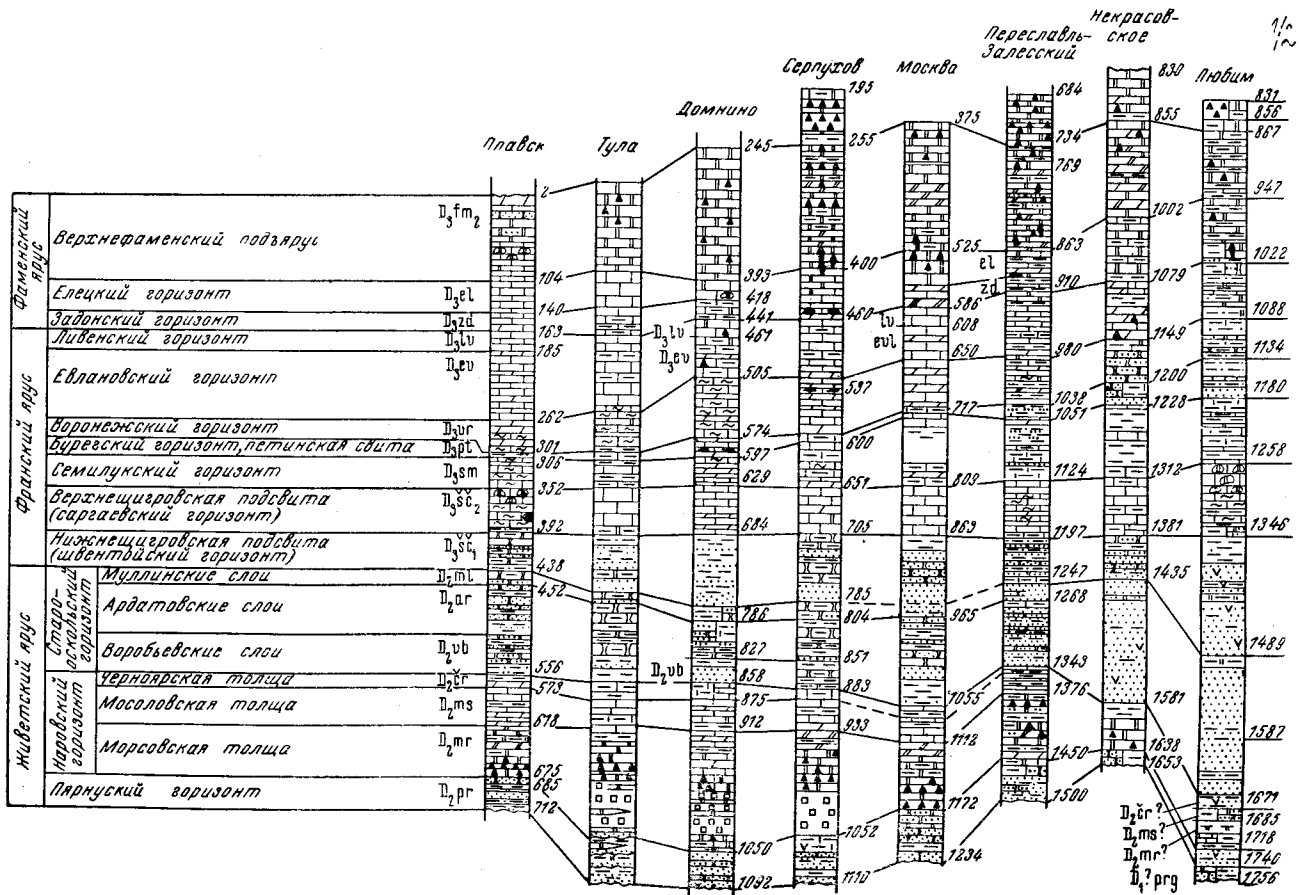 Плавск
Тула
Домнино
Серпухов
Москва
Переславль-
Залесский
Некрасов-
ское
Любим
Фаменский
ярус
Верхнефаменский подъярус D₃fm₂
Елецкий горизонт D₃el
Задонский горизонт D₃zd
Франский ярус
Ливенский горизонт D₃lv
Евлановский горизонт D₃ev
Воронежский горизонт D₃vr
Бурегский горизонт, петинская свита D₃pt
Семилукский горизонт D₃sm
Верхнещигровская подсвита
(саргаевский горизонт) D₃šč₂
Нижнещигровская подсвита
(швентойский горизонт) D₃šč₁
Живетский ярус
Старо-
оскольский
горизонт
Муллинские слои D₂ml
Ардатовские слои D₂ar
Воробьевские слои D₂vb
Наровский
горизонт
Черноярская толща D₂čr
Мосоловская толща D₂ms
Морсовская толща D₂mr
Пярнуский горизонт D₂pr
2
104
140
163
185
262
301
306
352
392
438
452
556
573
618
675
685
712
245
393
418
441
461
505
574
597
629
684
786
827
858
875
912
1050
1092
D₃lv
D₃ev
D₂vb
195
255
400
460
537
600
651
705
785
804
851
883
933
1052
1110
lv
evl
375
525
586
608
650
717
809
863
965
1055
1112
1172
1234
el
zd
684
734
769
863
910
980
1038
1051
1124
1197
1247
1268
1343
1376
1450
1500
830
855
1002
1079
1149
1200
1228
1312
1381
1435
1581
1638
1653
831
856
867
947
1022
1088
1134
1180
1258
1346
1489
1587
1671
1685
1718
1740
1756
D₂čr?
D₂ms?
D₂mr?
D₁?prg